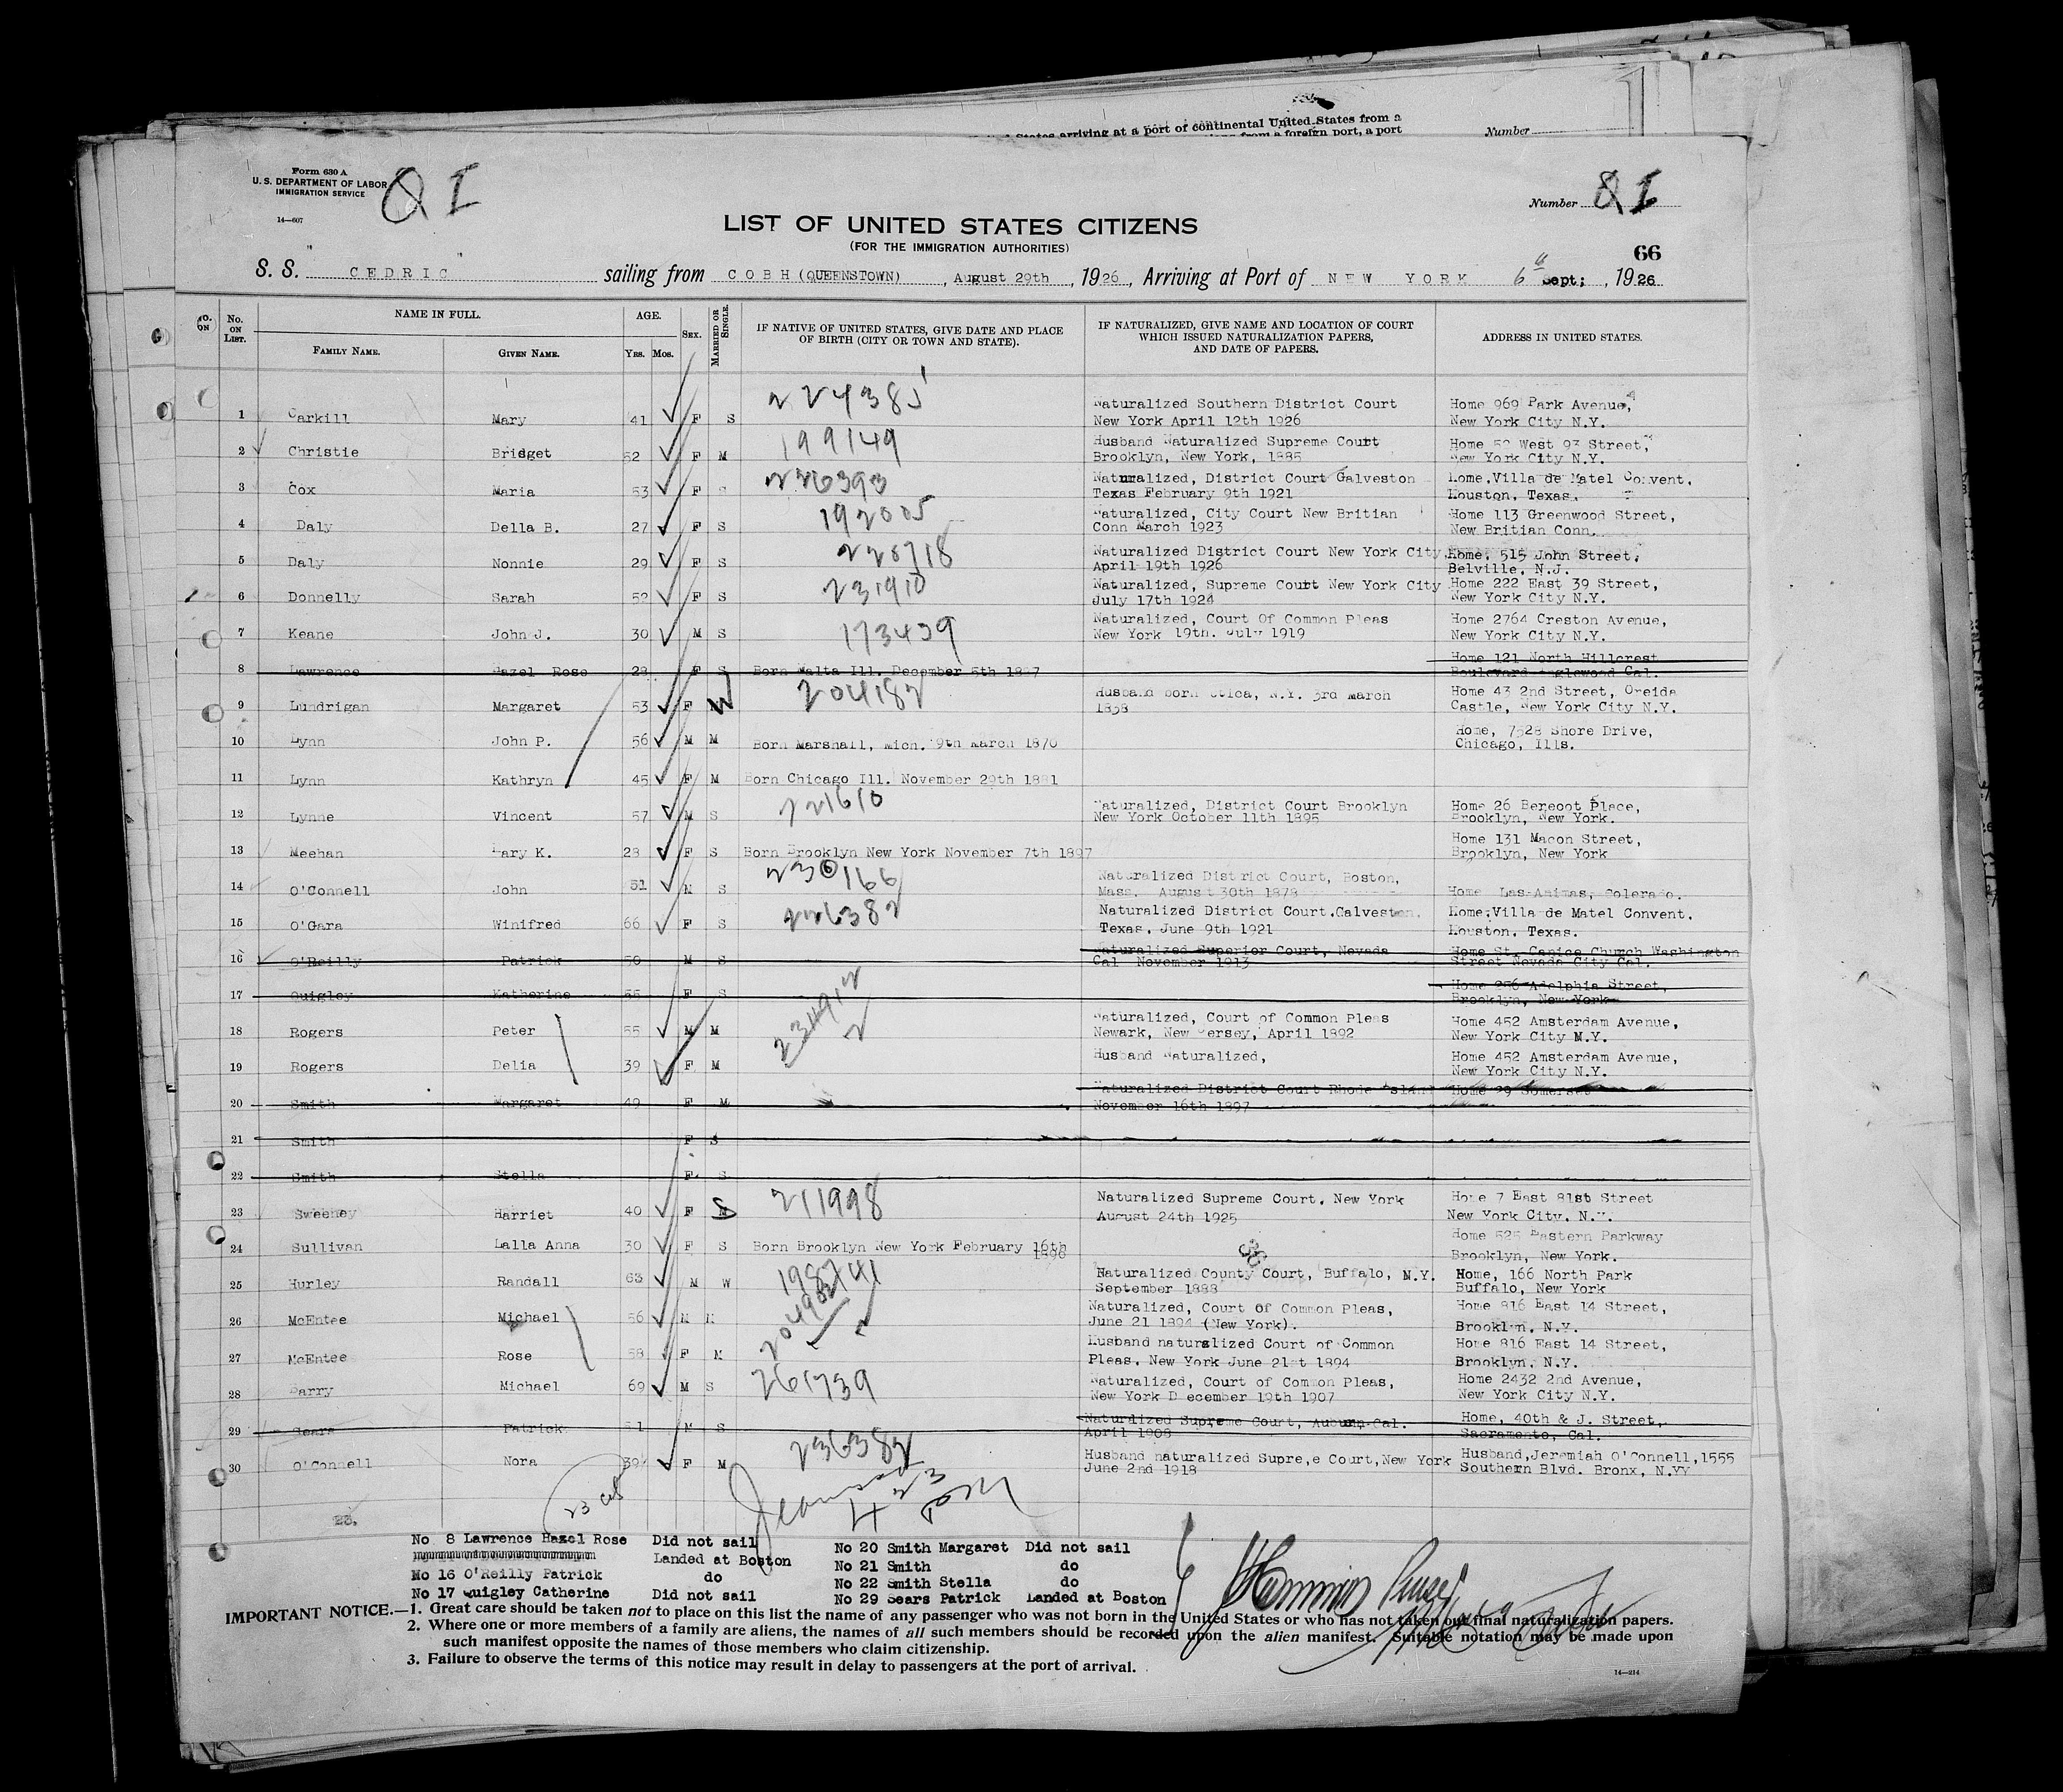 States arriving at a port of continental United States from a
from a foreign port, a port
Number
Form 630 A
U. S. DEPARTMENT OF LABOR
IMMIGRATION SERVICE
14—607
Q I
Number 8I
LIST OF UNITED STATES CITIZENS
(FOR THE IMMIGRATION AUTHORITIES)
66
S. S. " CEDRIC " sailing from COBH (QUEENSTOWN), August 29th, 1926, Arriving at Port of NEW YORK 6th Sept; , 1926
No. ON LIST.
NAME IN FULL.
FAMILY NAME.
GIVEN NAME.
AGE.
YRS. MOS.
SEX.
MARRIED OR SINGLE.
IF NATIVE OF UNITED STATES, GIVE DATE AND PLACE
OF BIRTH (CITY OR TOWN AND STATE).
IF NATURALIZED, GIVE NAME AND LOCATION OF COURT
WHICH ISSUED NATURALIZATION PAPERS,
AND DATE OF PAPERS.
ADDRESS IN UNITED STATES.
1 Carkill Mary 41 F S 224385 Naturalized Southern District Court Home 969 Park Avenue,
New York April 12th 1926 New York City N.Y.
2 Christie Bridget 52 F M 199149 Husband Naturalized Supreme Court Home 52 West 93 Street,
Brooklyn, New York, 1885 New York City N.Y.
3 Cox Maria 53 F S 226393 Naturalized, District Court Galveston Home.Villa de Matel Convent.
Texas February 9th 1921 Houston, Texas.
4 Daly Della B. 27 F S 192005 Naturalized, City Court New Britian Home 113 Greenwood Street,
Conn March 1923 New Britian Conn.
5 Daly Nonnie 29 F S 228718 Naturalized District Court New York City, Home, 515 John Street.
April 19th 1926 Belville, N.J.
6 Donnelly Sarah 52 F S 231910 Naturalized, Supreme Court New York City Home 222 East 39 Street,
July 17th 1924 New York City N.Y.
7 Keane John J. 30 M S 173459 Naturalized, Court Of Common Pleas Home 2764 Creston Avenue,
New York 19th. July 1919 New York City N.Y.
8 Lawrence Hazel Rose 28 F S Born Malta Ill. December 5th 1897 Home 121 North Hillcrest
Boulevard Inglewood Cal.
9 Lundrigan Margaret 53 F W 204182 Husband born Utica, N.Y. 3rd March Home 43 2nd Street, Oneida
1858 Castle, New York City N.Y.
10 Lynn John P. 56 M M Born Marshall, Mich. 9th March 1870 Home, 7528 Shore Drive,
Chicago, Ills.
11 Lynn Kathryn 45 F M Born Chicago Ill. November 29th 1881
12 Lynne Vincent 57 M S 221610 Naturalized, District Court Brooklyn Home 26 Berecot Place,
New York October 11th 1895 Brooklyn, New York.
13 Meehan Mary K. 28 F S Born Brooklyn New York November 7th 1897 Home 131 Macon Street,
Brooklyn, New York
14 O'Connell John 51 M S 230166 Naturalized District Court, Boston,
Mass. August 30th 1878 Home Las-Animas, Colerado.
15 O'Gara Winifred 66 F S 226382 Naturalized District Court.Galveston. Home.Villa de Matel Convent.
Texas. June 9th 1921 Houston, Texas.
16 O'Reilly Patrick 50 M S Naturalized Superior Court, Nevada Home St. Canice Church Washington
Cal November 1913 Street Nevada City Cal.
17 Quigley Katherine 55 F S Home 256 Adelphia Street,
Brooklyn, New York
18 Rogers Peter 55 M M Naturalized, Court of Common Pleas Home 452 Amsterdam Avenue,
Newark, New Jersey, April 1892 New York City N.Y.
19 Rogers Delia 39 F M Husband Naturalized, Home 452 Amsterdam Avenue,
New York City N.Y.
20 Smith Margaret 49 F M Naturalized District Court Rhode Island Home 29 Somerset
November 16th 1897
21 Smith F S
22 Smith Stella F S
23 Sweeney Harriet 40 F S 211998 Naturalized Supreme Court. New York Home 7 East 81st Street
August 24th 1925 New York City. N.Y.
24 Sullivan Lalla Anna 30 F S Born Brooklyn New York February 16th Home 525 Eastern Parkway
1896 Brooklyn, New York.
25 Hurley Randall 63 M W Naturalized County Court, Buffalo, N.Y. Home, 166 North Park
September 1888 Buffalo, New York
26 McEntee Michael 56 M M Naturalized, Court of Common Pleas, Home 816 East 14 Street,
June 21 1894 (New York). Brooklyn. N.Y.
27 McEntee Rose 58 F M Husband naturalized Court of Common Home 816 East 14 Street,
Pleas. New York June 21st 1894 Brooklyn. N.Y.
28 Barry Michael 69 M S 261739 Naturalized, Court of Common Pleas, Home 2432 2nd Avenue,
New York D ecember 19th 1907 New York City N.Y.
29 Sears Patrick 51 M S Naturalized Supreme Court, Auburn Cal. Home, 40th & J. Street,
April 1908 Sacramento, Cal.
30 O'Connell Nora 39 F M 236382 Husband naturalized Supre,e Court,New York Husband,Jeremiah O'Connell,1555
June 2nd 1918 Southern Blvd. Bronx, N.YY
No 8 Lawrence Hazel Rose Did not sail
Landed at Boston
No 16 O'Reilly Patrick do
No 17 Quigley Catherine Did not sail
No 20 Smith Margaret Did not sail
No 21 Smith do
No 22 Smith Stella do
No 29 Sears Patrick Landed at Boston
IMPORTANT NOTICE.—1. Great care should be taken not to place on this list the name of any passenger who was not born in the United States or who has not taken out final naturalization papers.
2. Where one or more members of a family are aliens, the names of all such members should be recorded upon the alien manifest. Suitable notation may be made upon
such manifest opposite the names of those members who claim citizenship.
3. Failure to observe the terms of this notice may result in delay to passengers at the port of arrival.
14—214